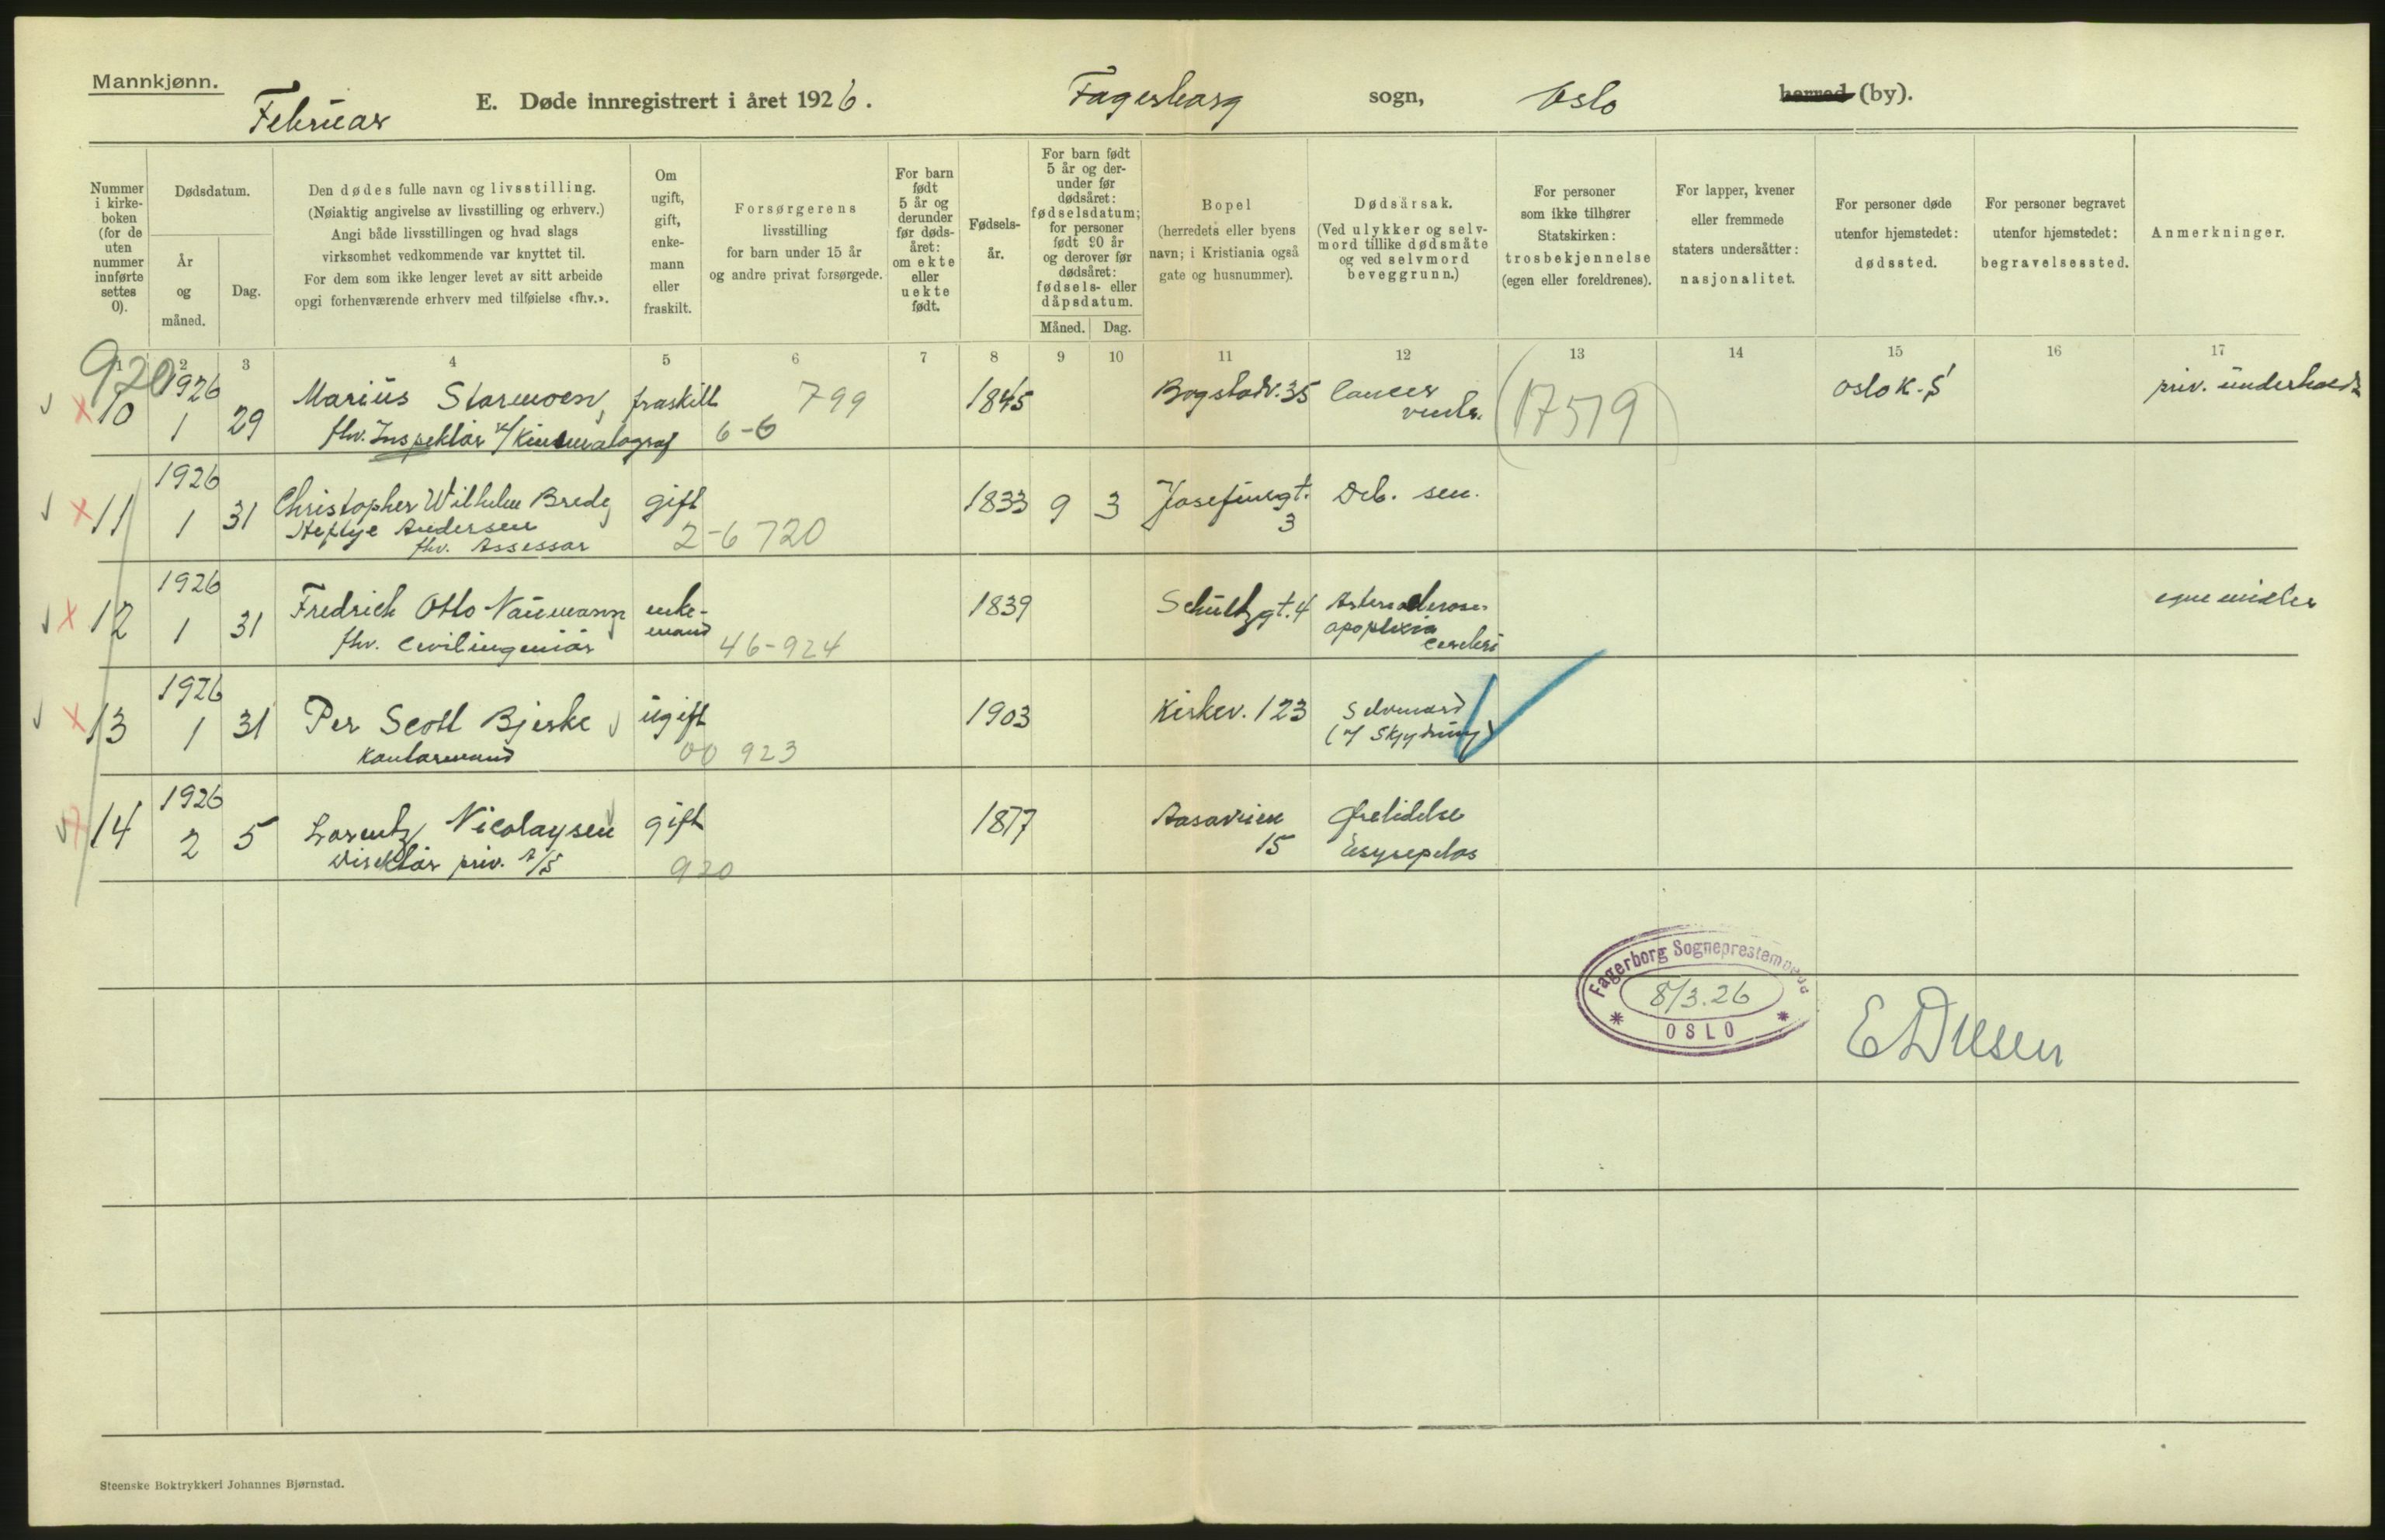 Mannkjønn.
Februar
E. Døde innregistrert i året 1926.
Fagerborg sogn, Oslo herred (by).
Nummer i kirkeboken (for de uten nummer innførte settes 0).
Dødsdatum.
År og måned.
Dag.
Den dødes fulle navn og livsstilling.
(Nøiaktig angivelse av livsstilling og erhverv.)
Angi både livsstillingen og hvad slags
virksomhet vedkommende var knyttet til.
For dem som ikke lenger levet av sitt arbeide
opgi forhenværende erhverv med tilføielse «fhv.».
Om ugift, gift, enkemann eller fraskilt.
Forsørgerens
livsstilling
for barn under 15 år
og andre privat forsørgede.
For barn født 5 år og derunder før dødsåret: om ekte eller uekte født.
Fødselsår.
For barn født 5 år og derunder før dødsåret: fødselsdatum; for personer født 90 år og derover før dødsåret: fødsels- eller dåpsdatum.
Måned.
Dag.
Bopel
(herredets eller byens
navn; i Kristiania også
gate og husnummer).
Dødsårsak.
(Ved ulykker og selvmord tillike dødsmåte
og ved selvmord
beveggrunn.)
For personer
som ikke tilhører
Statskirken:
trosbekjennelse
(egen eller foreldrenes).
For lapper, kvener
eller fremmede
staters undersåtter:
nasjonalitet.
For personer døde
utenfor hjemstedet:
dødssted.
For personer begravet
utenfor hjemstedet:
begravelsessted.
Anmerkninger.
1 2 3 4 5 6 7 8 9 10 11 12 13 14 15 16 17
920
10 1926 1 29 Marius Starmoen, fraskilt 799 1845 Bogstadv. 35 Cancer ventr. (17519) Oslo K.S. priv. underholdt
fhv. Inspektør v/ Kinematograf 6-6
11 1926 1 31 Christopher Wilhelm Brede gift 1833 9 3 Josefinegt. 3 Deb. sen.
Heftye Andersen
fhv. Assessor 2-6 720
12 1926 1 31 Fredrich Otto Naumann enkemand 1839 Schultzgt. 4 Arteriosclerose apoplexia cerebri egne midler
fhv. Civilingeniør 46-924
13 1926 1 31 Per Scott Bjerke ugift 1903 Kirkev. 123 Selvmord (v/ Skydning)
Kontormand 00 923
14 1926 2 5 Lorentz Nicolaysen gift 1877 Aasaveien 15 Ørelidelse Erysepelas
Direktør priv. A/S 920
Fagerborg Sogneprestembede
8/3.26
OSLO
Steenske Boktrykkeri Johannes Bjørnstad.